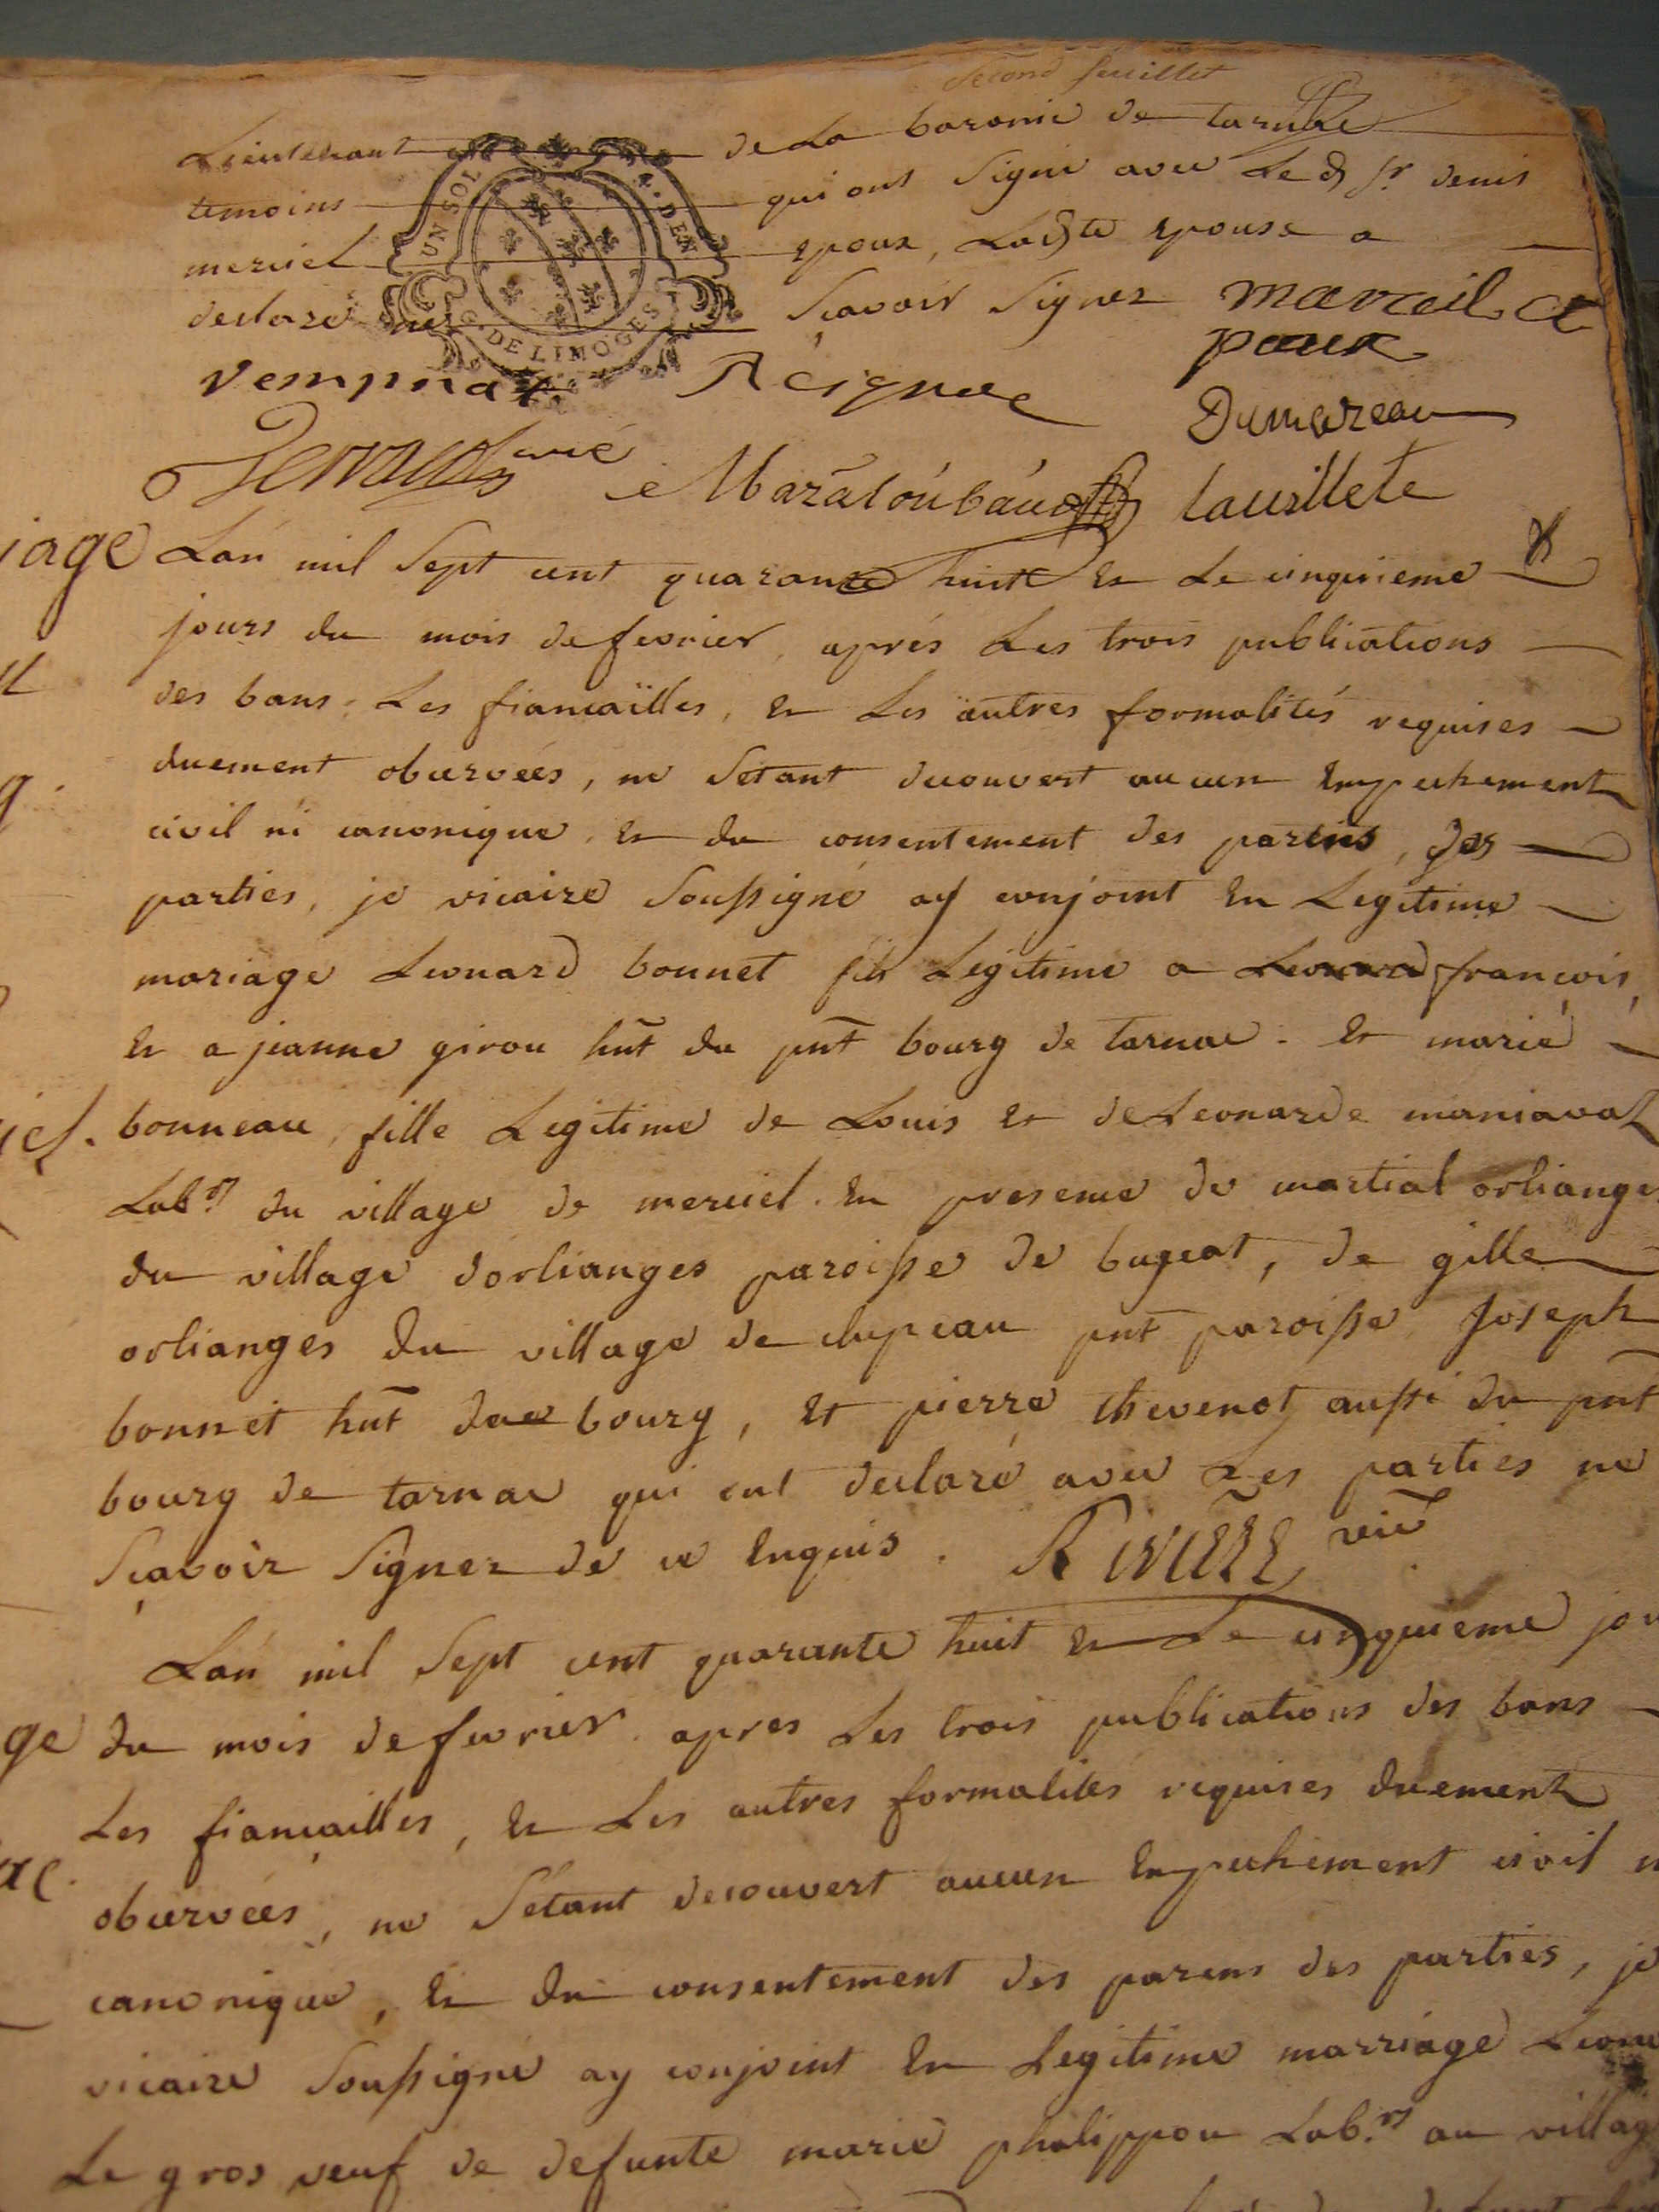 second feuillet
Lieutenant de La baronie de tarnac
temoins qui ont signé avec Le d sr denis
merciel epoux, Ladte epouse a
declaré ne sçavoir signer marceil e
poux
UN SOL . DEN
G. DE LIMOGES
vempnat Reignac
Dumazeau
curé Mazaloubaud lauillete
iage Lan mil sept cent quarante huit et Le cinquieme
jours du mois de fevrier, aprés Les trois publications
des bans, Les fiancailles, et Les autres formalités requises
duement observées, ne sétant decouvert aucun Empechement
civil ni canonique, et du consentement des parens, des
parties, je vicaire soussigné ay conjoint En Legitime
mariage Leonard bonnet fils Legitime a Leonard francois,
et a jeanne girou hnt du pnt bourg de tarnac. Et marie
bonneau, fille Legitime de Louis et de Leonarde maniaval
Labrs du village de merciel. En presence de martial orlianges
du village dorlianges paroisse de bugeat, de gille
orlianges du village de clupeau pnt paroisse, Joseph
bonnet hnt du bourg, et pierre thevenot aussi du pnt
bourg de tarnac qui ont declaré avec Les parties ne
sçavoir signer de ce Enquis. Riviere vic
Lan mil sept cent quarante huit et Le cinquieme jou
ge du mois de fevrier. apres Les trois publications des bans
Les fiançailles, et Les autres formalités requises duement
ac. observées, ne sétant decouvert aucun Empechement civil n
canonique, Et du consentement des parens des parties, je
vicaire soussigné ay conjoint En Legitime marriage Leona
Le gros veuf de defunte marie phalippou Labrs au villag